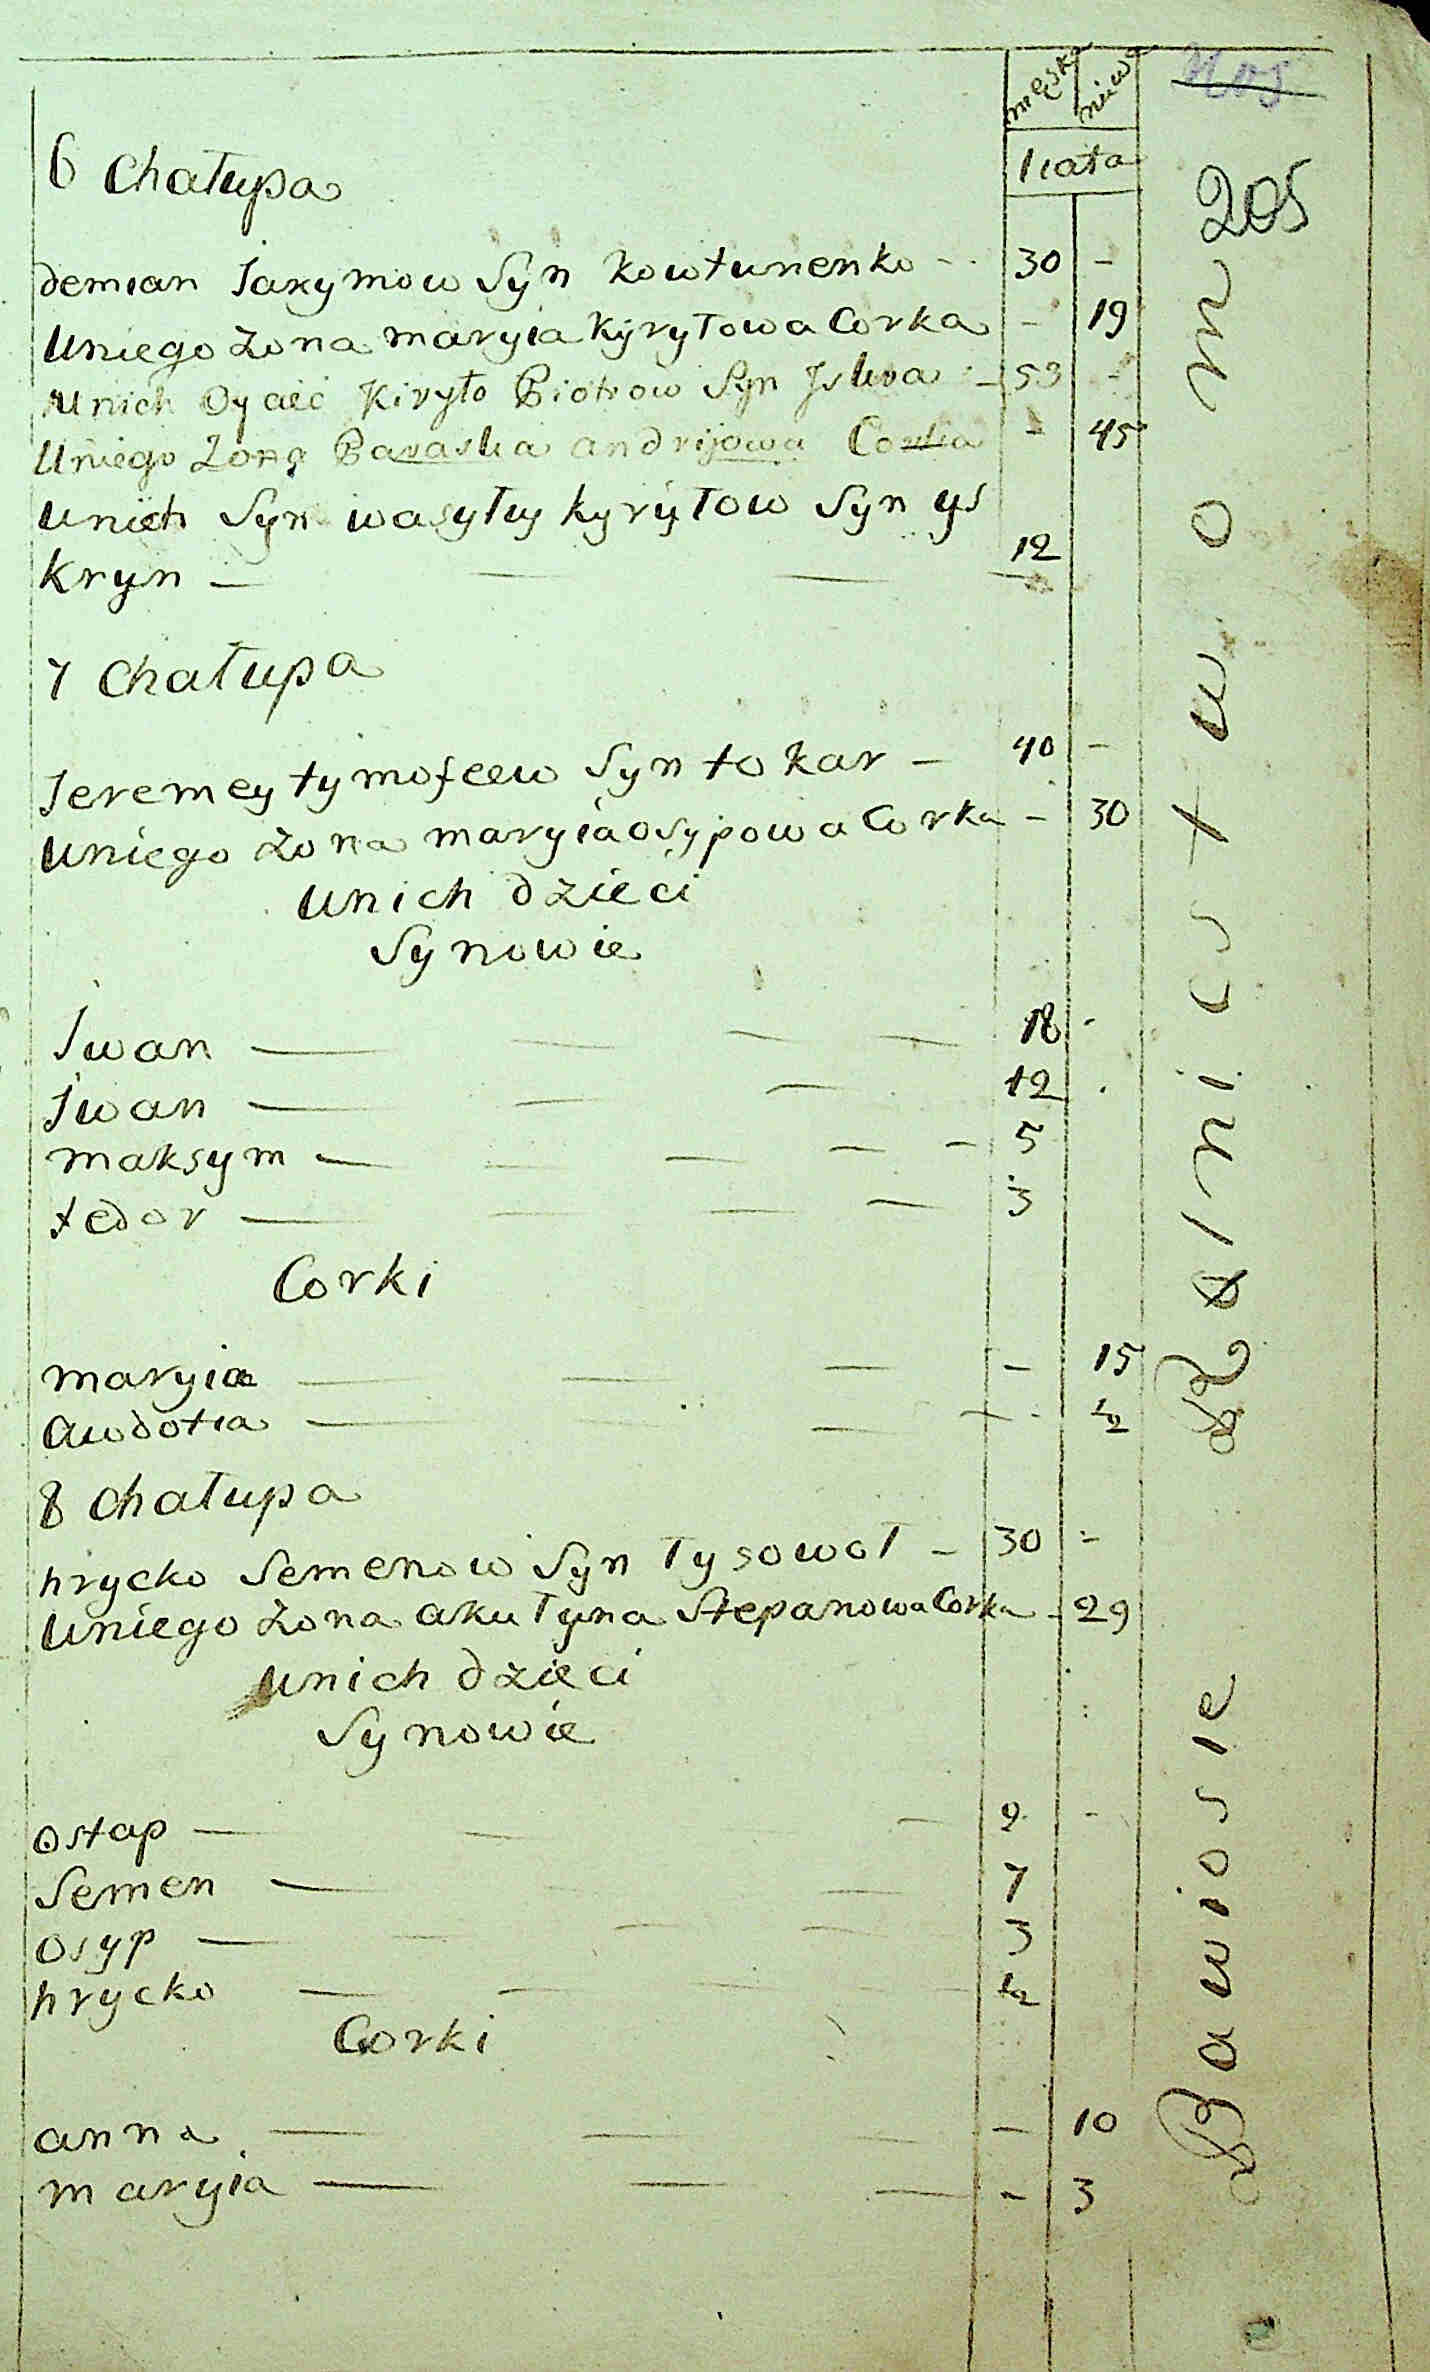 męska niewa
liata
205
6 Chałupa
demian Jakymow Syn kowtunenko - 30 -
Uniego żona maryia Kyryłowa Corka - 19
Unich Oyciec Kiryło Piotrow Syn - 53 -
Uniego Żona Paraska andrijowa Corka - 45
Unich Syn wasyłyy kyryłow Syn ys
kryn - 12
7 Chałupa
Jeremey tymofeew Syn tokar - 40 -
Uniego żona maryia osypowa Corka - 30
Unich dzieci
Synowie
Iwan - 18 -
Iwan - 12
maksym - 5
fedor - 3
Corki
maryia - 15
Awdotia - ½
8 Chałupa
hrycko Semenow Syn łysowoł - 30 -
Uniego żona akułyna Stepanowa Corka - 29
Unich dzieci
Synowie
ostap - 9 -
Semen - 7
osyp - 3
hrycko - ½
Corki
anna - 10
maryia - 3